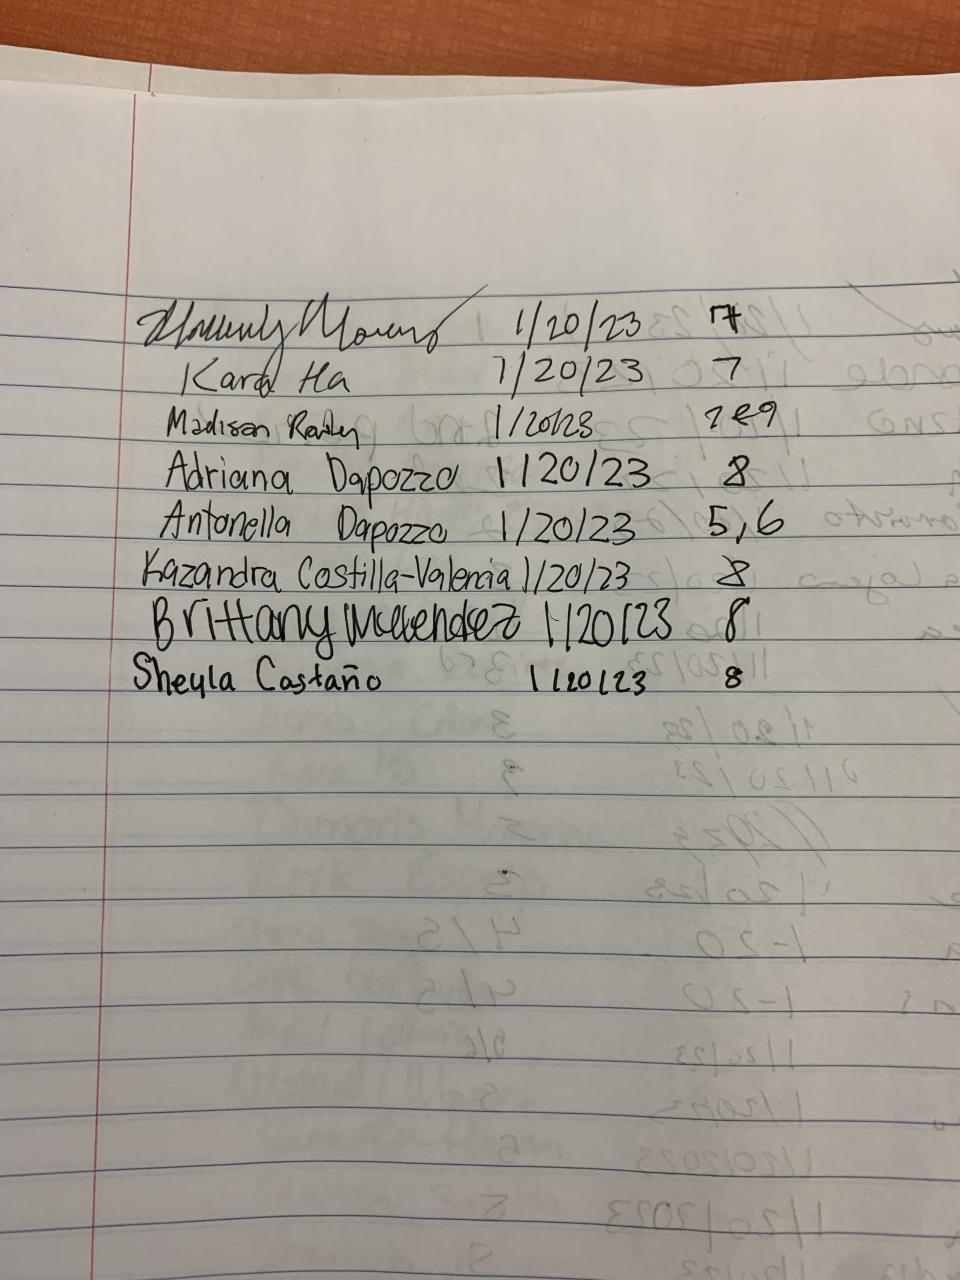 Moreno 1/20/23 7
Kara Ha 1/20/23 7
Madison 1/20/23 7 e 9
Adriana Dapozzo 1/20/23 8
Antonella Dapozzo 1/20/23 5,6
Kazandra Costilla-Valencia 1/20/23 8
Brittany 1/20/23 8
Sheyla Castaño 1/20/23 8